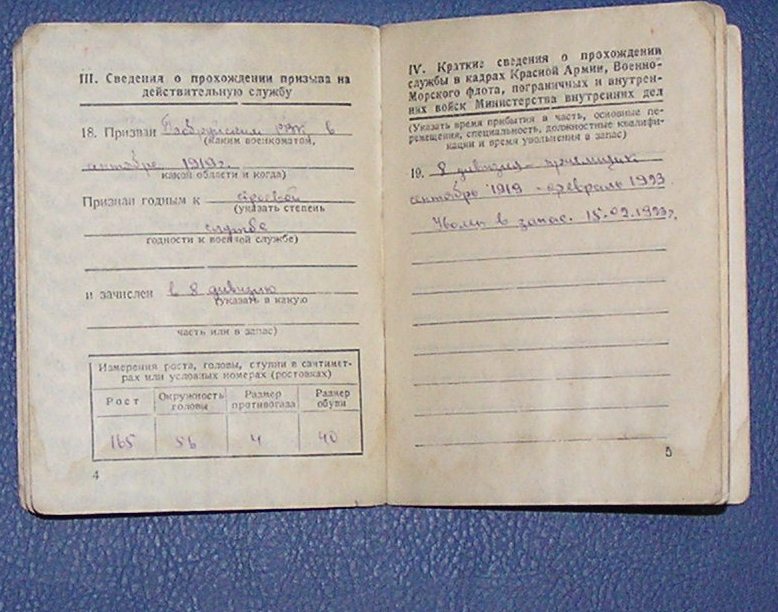 III. Сведения о прохождении призыва на
действительную службу
18. Призван РВК в
(каким военкоматом,
сентябре 1919 г.
какой области и когда)
Признан годным к строевой
(указать степень
службе
годности к военной службе)
и зачислен в 8 дивизию
(указать в какую
часть или в запас)
Измерения роста, головы, ступни в сантимет-
рах или условных номерах (ростовках)
Рост Окружность головы Размер противогаза Размер обуви
165 56 4 40
4
IV. Краткие сведения о прохождении
службы в кадрах Красной Армии, Военно-
Морского флота, пограничных и внутрен-
них войск Министерства внутренних дел
(Указать время прибытия в часть, основные пе-
ремещения, специальность, должностные квалифи-
кации и время увольнения в запас)
19. 8 дивизия -
сентябрь 1919 - февраль 1923
Уволен в запас. 15.02.1923 г.
5